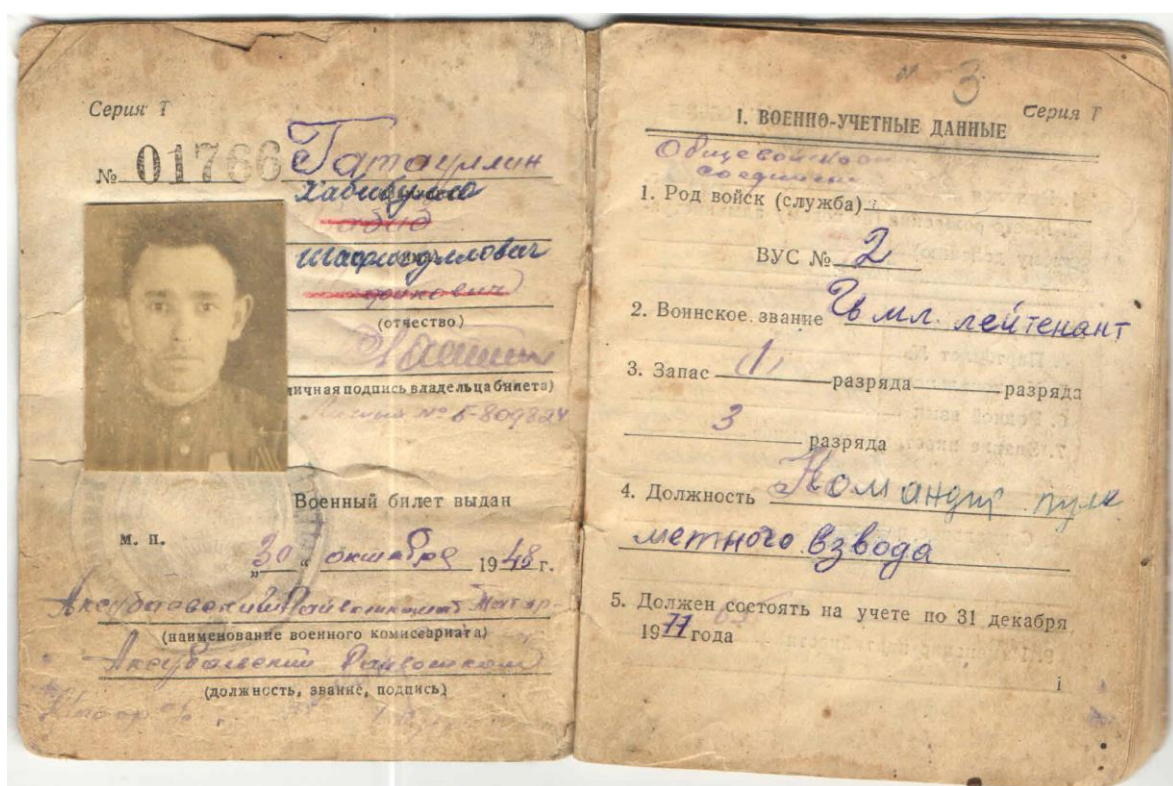 Серия Т
№ 01766 Гатауллин
Хабибулло
Шафигуллович
(отчество)
личная подпись владельца билета)
Личный № Б-809824
Военный билет выдан
м. п.
„30 " октября 1948 г.
Аксубаевский Райвоенкомат Татар-
(наименование военного комиссариата)
Аксубаевский Райвоенком
(должность, звание, подпись)
Майор
3
Серия Т
I. ВОЕННО-УЧЕТНЫЕ ДАННЫЕ
Общевойсков
соединени
1. Род войск (служба)
ВУС № 2
2. Воинское звание Гв мл. лейтенант
3. Запас 1, разряда разряда
3 разряда
4. Должность Командир пуле
метного взвода
5. Должен состоять на учете по 31 декабря
1977 года
1